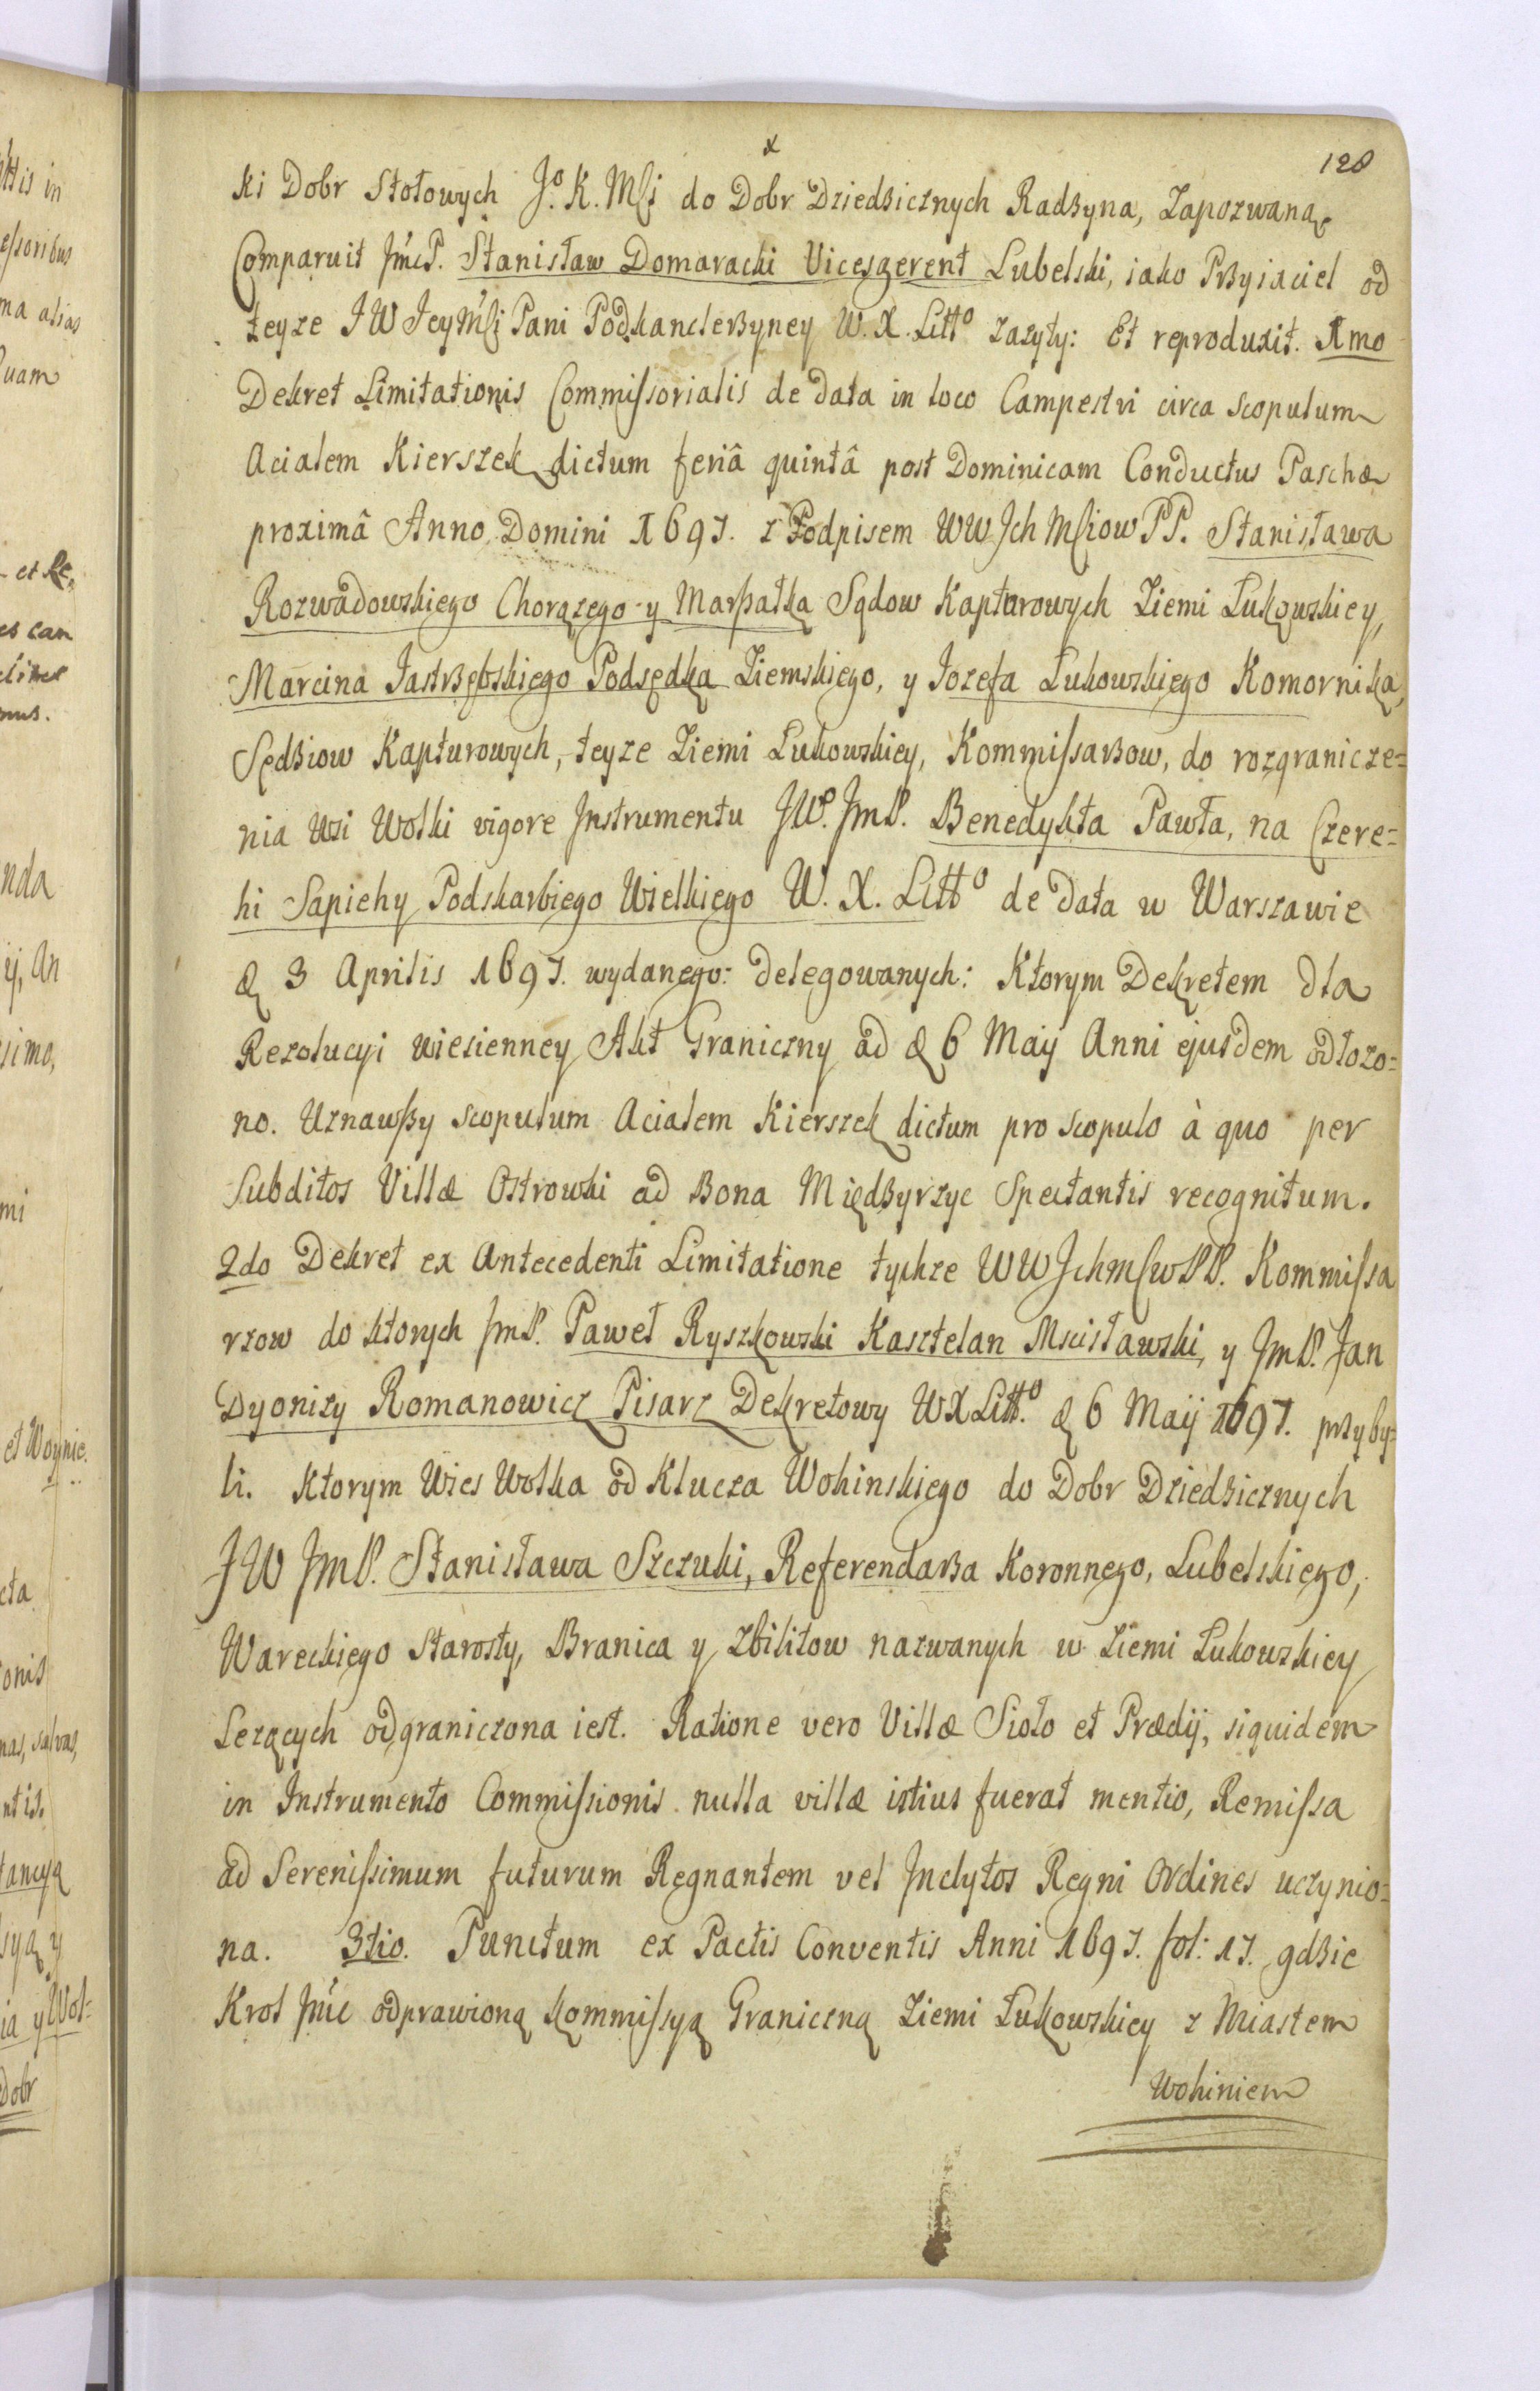 x
128
ki Dobr Stołowych Jº. K. Mſi do Dobr Dziedzicznych Radzyna, Zapozwaną.
Comparuit JmćP. Stanisław Domaracki Vicesgerent Lubelski, iako Przyiaciel od
teyze JW JeyMſi Pani Podkanclerzyney W. X. Littº zazyty: Et reproduxit. 1mo
Dekret Limitationis Commiſsorialis de data in loco Campestri circa scopulum
Acialem Kierszek dictum feriâ quintâ post Dominicam Conductus Paschæ
proximâ Anno Domini 1697. z Podpisem WW Jch Mſiow PP. Stanisława
Rozwadowskiego Chorązego y Marszałka Sądow Kapturowych Ziemi Łukowskiey,
Marcina Jastrzębskiego Podsędka Ziemskiego, y Jozefa Łukowskiego Komornika,
Sędziow Kapturowych, teyze Ziemi Łukowskiey, Kommiſsarzow, do rozgranicze=
nia Wsi Wolki vigore Jnstrumentu JWº. JmP. Benedykta Pawła, na Czere=
hi Sapiehy Podskarbiego Wielkiego W. X. Littº de data w Warszawie
d 3 Aprilis 1697. wydanego: delegowanych: Ktorym Dekretem dla
Rezolucyi wiesienney Akt Graniczny ad d 6 Maij Anni ejusdem odłozo=
no. Uznawszy scopulum Acialem Kierszek dictum pro scopulo à quo per
Subditos Villæ Ostrowki ad Bona Międzyrzyc Spectantis recognitum.
2do Dekret ex Antecedenti Limitatione tychze WWJchmſwPP. Kommiſsa
rzow do ktorych JmP. Paweł Ryszkowski Kasztelan Mscisławski, y JmP. Jan
Dyonizy Romanowicz Pisarz Dekretowy WXLittº. d 6 Maij 1697. przyby=
li. Ktorym Wies Wolka od Klucza Wohinskiego do Dobr Dziedzicznych
JW JmP. Stanisława Szczuki, Referendarza Koronnego, Lubelskiego,
Wareckiego Starosty, Branica y Zbilitow nazwanych w Ziemi Łukowskiey
Lezących odgraniczona iest. Ratione vero Villæ Sioło et Prædij, siquidem
in Instrumento Commiſsionis nulla villæ istius fuerat mentio, Remiſsa
ad Sereniſsimum futurum Regnantem vel Jnclytos Regni Ordines uczynio=
na. 3tio. Punctum ex Pactis Conventis Anni 1697. fol: 17. gdzie
Krol Jmć odprawioną Kommiſsyą Graniczną Ziemi Łukowskiey z Miastem
Wohiniem